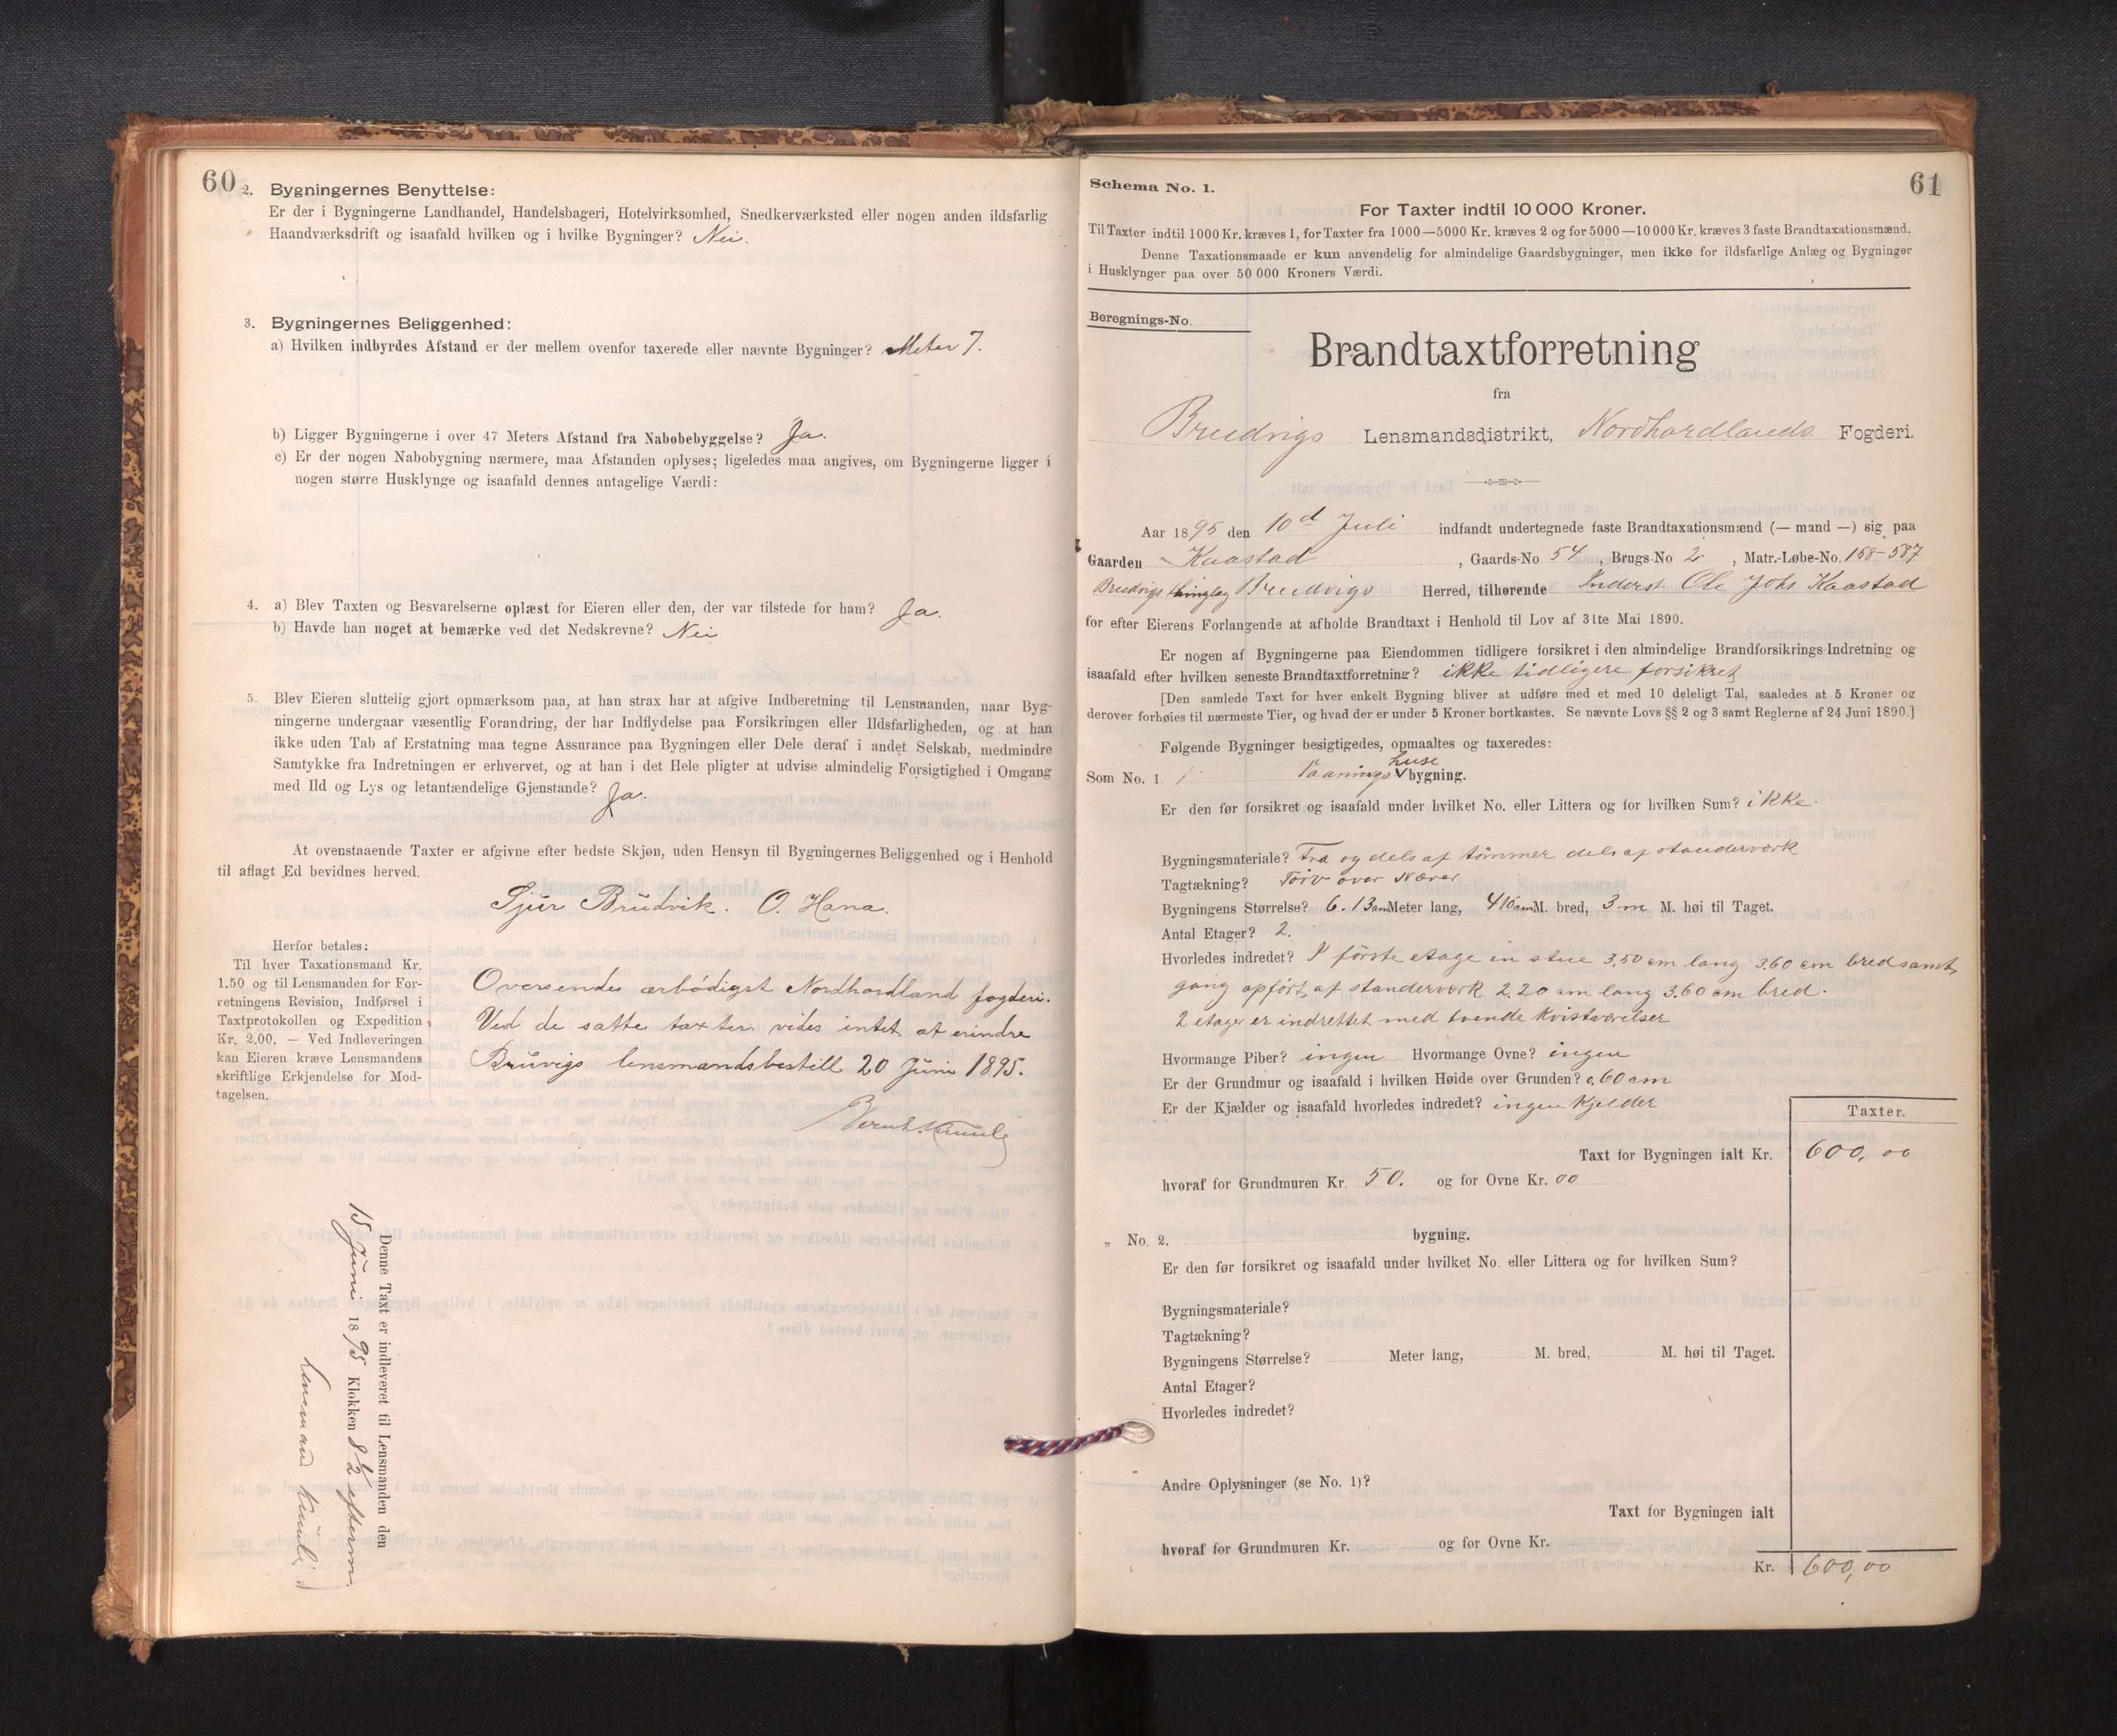 60
2. Bygningernes Benyttelse:
Er der i Bygningerne Landhandel, Handelsbageri, Hotelvirksomhed, Snedkerværksted eller nogen anden ildsfarlig
Haandværksdrift og isaafald hvilken og i hvilke Bygninger? Nei.
3. Bygningernes Beliggenhed:
a) Hvilken indbyrdes Afstand er der mellem ovenfor taxerede eller nævnte Bygninger? Meter 7.
b) Ligger Bygningerne i over 47 Meters Afstand fra Nabobebyggelse? Ja.
c) Er der nogen Nabobygning nærmere, maa Afstanden oplyses; ligeledes maa angives, om Bygningerne ligger i
nogen større Husklynge og isaafald dennes antagelige Værdi:
4. a) Blev Taxten og Besvarelserne oplæst for Eieren eller den, der var tilstede for ham? Ja.
b) Havde han noget at bemærke ved det Nedskrevne? Nei
5. Blev Eieren sluttelig gjort opmærksom paa, at han strax har at afgive Indberetning til Lensmanden, naar Byg-
ningerne undergaar væsentlig Forandring, der har Indflydelse paa Forsikringen eller Ildsfarligheden, og at han
ikke uden Tab af Erstatning maa tegne Assurance paa Bygningen eller Dele deraf i andet Selskab, medmindre
Samtykke fra Indretningen er erhvervet, og at han i det Hele pligter at udvise almindelig Forsigtighed i Omgang
med Ild og Lys og letantændelige Gjenstande? Ja.
At ovenstaaende Taxter er afgivne efter bedste Skjøn, uden Hensyn til Bygningernes Beliggenhed og i Henhold
til aflagt Ed bevidnes herved.
Sjur Brudvik. O. Hana.
Herfor betales:
Til hver Taxationsmand Kr.
1.50 og til Lensmanden for For-
retningens Revision, Indførsel i
Taxtprotokollen og Expedition
Kr. 2.00. — Ved Indleveringen
kan Eieren kræve Lensmandens
skriftlige Erkjendelse for Mod-
tagelsen.
Oversendes ærbødigst Nordhordland fogderi.
Ved de satte taxter vides intet at erindre
Bruvigs lensmandsbestill 20 Juni 1895.
Denne Taxt er indleveret til Lensmanden den
15 Juni 1895 Klokken 8 1/2 efterm.
Lensmand
61
Schema No. 1.
For Taxter indtil 10 000 Kroner.
Til Taxter indtil 1000 Kr. kræves 1, for Taxter fra 1000—5000 Kr. kræves 2 og for 5000—10 000 Kr. kræves 3 faste Brandtaxationsmænd.
Denne Taxationsmaade er kun anvendelig for almindelige Gaardsbygninger, men ikke for ildsfarlige Anlæg og Bygninger
i Husklynger paa over 50 000 Kroners Værdi.
Beregnings-No.
Brandtaxtforretning
fra
Brudvigs Lensmandsdistrikt, Nordhordlands Fogderi.
Aar 1895 den 10d Juli indfandt undertegnede faste Brandtaxationsmænd (— mand —) sig paa
Gaarden Kaastad, Gaards-No 54, Brugs-No 2, Matr.-Løbe-No. 168-587
Brudvigs thinglag Brudvigs Herred, tilhørende Inderst Ole Johs Kaastad
for efter Eierens Forlangende at afholde Brandtaxt i Henhold til Lov af 31te Mai 1890.
Er nogen af Bygningerne paa Eiendommen tidligere forsikret i den almindelige Brandforsikrings-Indretning og
isaafald efter hvilken seneste Brandtaxtforretning? ikke tidligere forsikret
[Den samlede Taxt for hver enkelt Bygning bliver at udføre med et med 10 deleligt Tal, saaledes at 5 Kroner og
derover forhøies til nærmeste Tier, og hvad der er under 5 Kroner bortkastes. Se nævnte Lovs §§ 2 og 3 samt Reglerne af 24 Juni 1890.]
Følgende Bygninger besigtigedes, opmaaltes og taxeredes:
Som No. 1. 1 Vaaningshuse bygning.
Er den før forsikret og isaafald under hvilket No. eller Littera og for hvilken Sum? ikke.
Bygningsmateriale? Træ og dels af tömmer dels af standerværk
Tagtækning? Törv over Næver
Bygningens Størrelse? 6.13cm Meter lang, 410cm M. bred, 3 m M. høi til Taget.
Antal Etager? 2.
Hvorledes indredet? I förste etage en stue 3,50 cm lang 3,60 cm bred samt,
gang opfört af standerværk 2,20 cm lang 3,60 cm bred.
2 etage er indrettet med tvende kvistværelser
Hvormange Piber? ingen Hvormange Ovne? ingen
Er der Grundmur og isaafald i hvilken Høide over Grunden? 0,60 cm
Er der Kjælder og isaafald hvorledes indredet? ingen kjelder
Taxter.
Taxt for Bygningen ialt Kr. 600,00
hvoraf for Grundmuren Kr. 50. og for Ovne Kr. 00
„ No. 2. bygning.
Er den før forsikret og isaafald under hvilket No. eller Littera og for hvilken Sum?
Bygningsmateriale?
Tagtækning?
Bygningens Størrelse? Meter lang, M. bred, M. høi til Taget.
Antal Etager?
Hvorledes indredet?
Andre Oplysninger (se No. 1)?
Taxt for Bygningen ialt
hvoraf for Grundmuren Kr. og for Ovne Kr.
Kr. 600,00